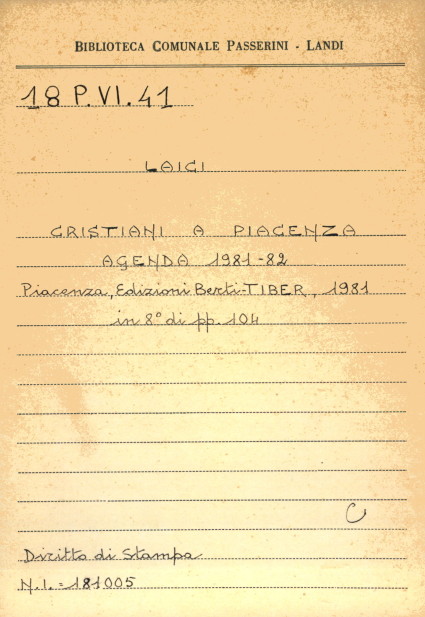 BIBLIOTECA COMUNALE PASSERINI - LANDI
18 P.VI.41
LAICI
CRISTIANI A PIACENZA
AGENDA 1981-82
Piacenza, Edizioni Berti-TIBER, 1981
in 8° di pp. 104
C
Diritto di Stampa
N.I. = 181005